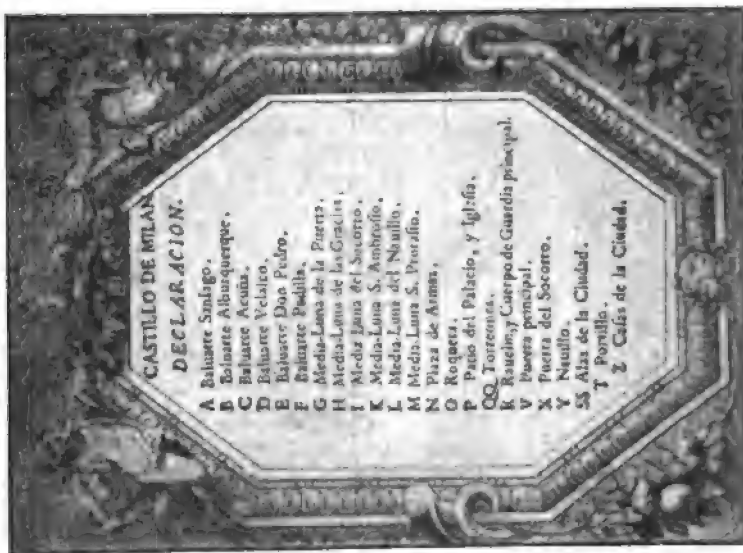 CASTILLO DE MILAN
DECLARACION.
A Baluarte Santiago.
B Baluarte Alburquerque.
C Baluarte Acuña.
D Baluarte Velasco.
E Baluarte Don Pedro.
F Baluarte Padilla.
G Media-Luna de la Puerta.
H Media-Luna de las Gracias.
I Media Luna del Socorro.
K Media-Luna S. Ambrosio.
L Media-Luna del Nauillo.
M Media-Luna S. Protasio.
N Plaza de Armas.
O Roqueta.
P Patio del Palacio, y Iglesia.
QQ Torreones.
R Rauelin, y Cuerpo de Guardia principal.
V Puerta principal.
X Puerta del Socorro.
Y Nauillo.
SS Alas de la Ciudad.
T Portillo.
Z Casas de la Ciudad.